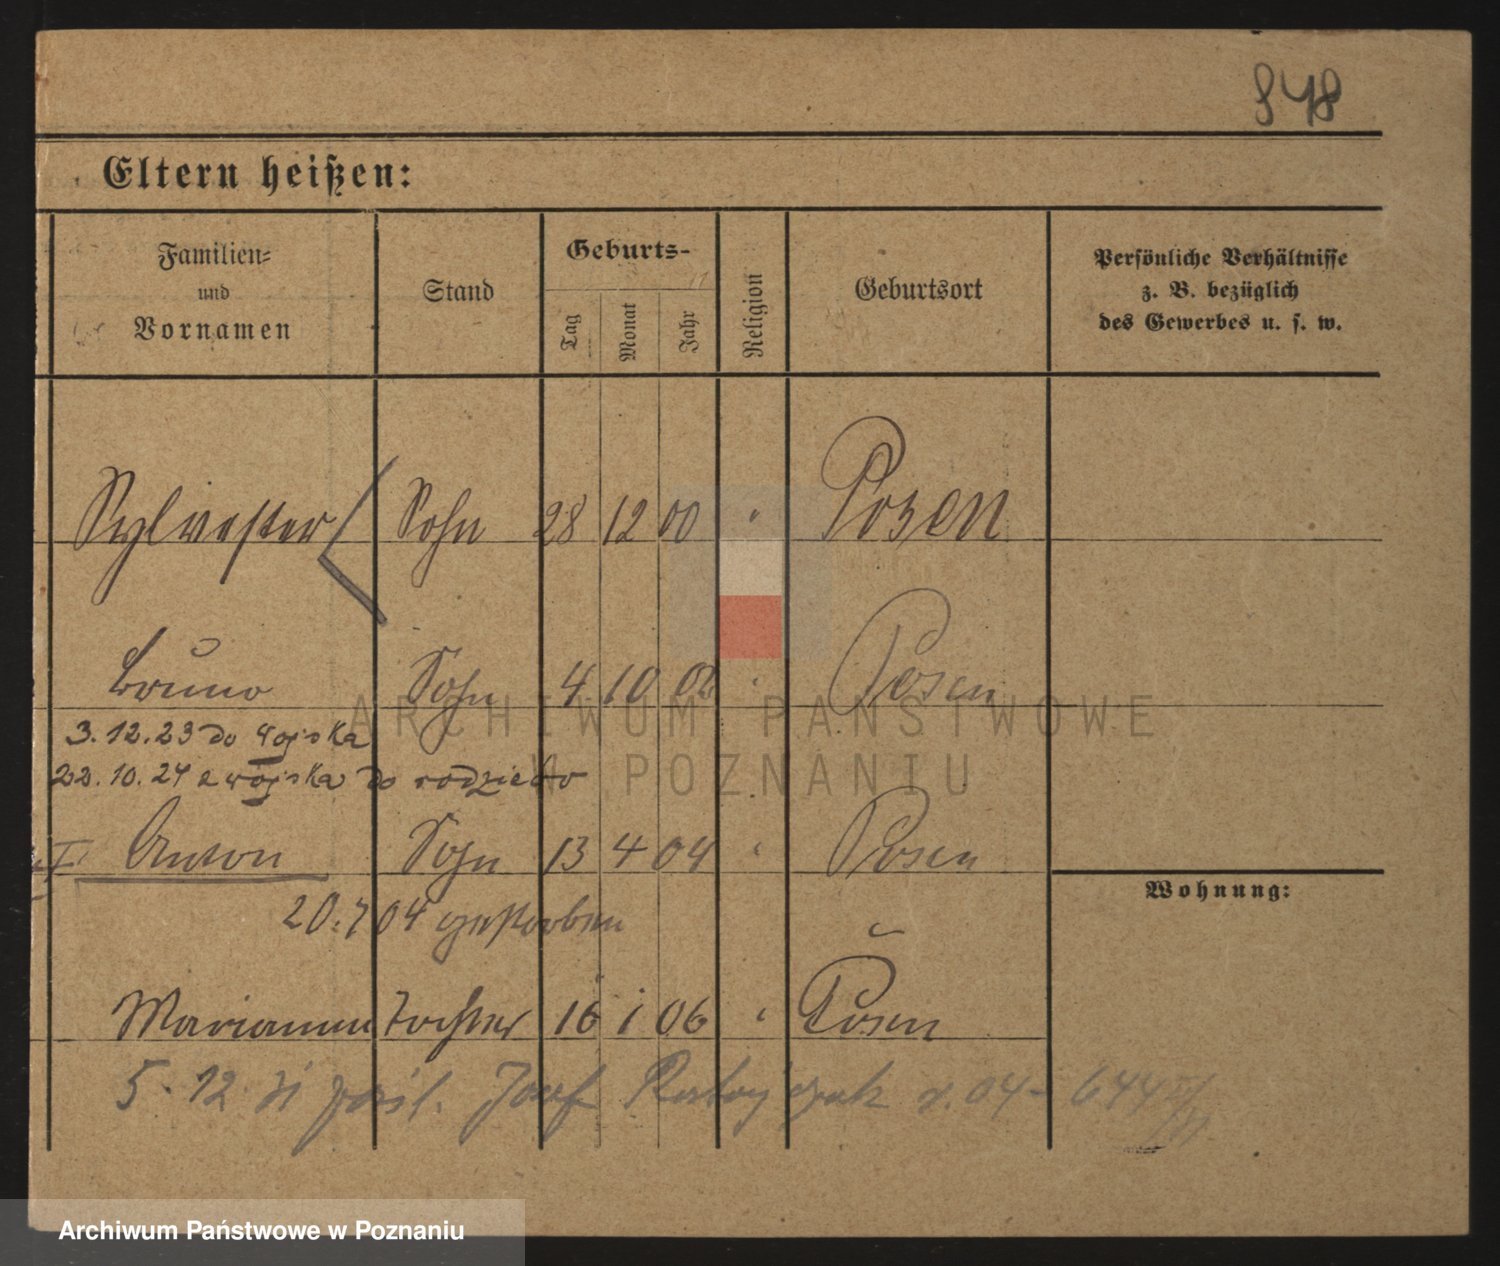 848
Eltern heißen:
Familien-
und
Vornamen
Stand
Geburts-
Tag
Monat
Jahr
Religion
Geburtsort
Persönliche Verhältnisse
z. B. bezüglich
des Gewerbes u. s. w.
Sylvester Sohn 28 12 00 " Posen
Bruno Sohn 4 10 02 " Posen
3.12.23 do wojska
22.10.24 z wojska do rodziców
I. Anton Sohn 13 4 04 " Posen
Wohnung:
20.7 04 gestorben
Marianna Tochter 16 1 06 " Posen
5.12. Josef Ratajczak 04 - 644
ARCHIWUM PAŃSTWOWE
W POZNANIU
Archiwum Państwowe w Poznaniu